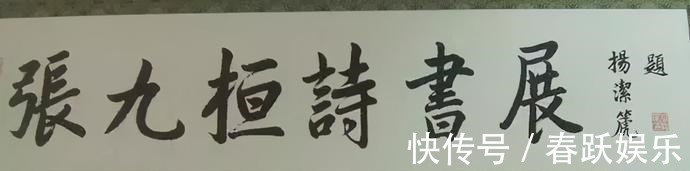 張九桓詩書展
楊潔篪
題
快传号/春跃娱乐